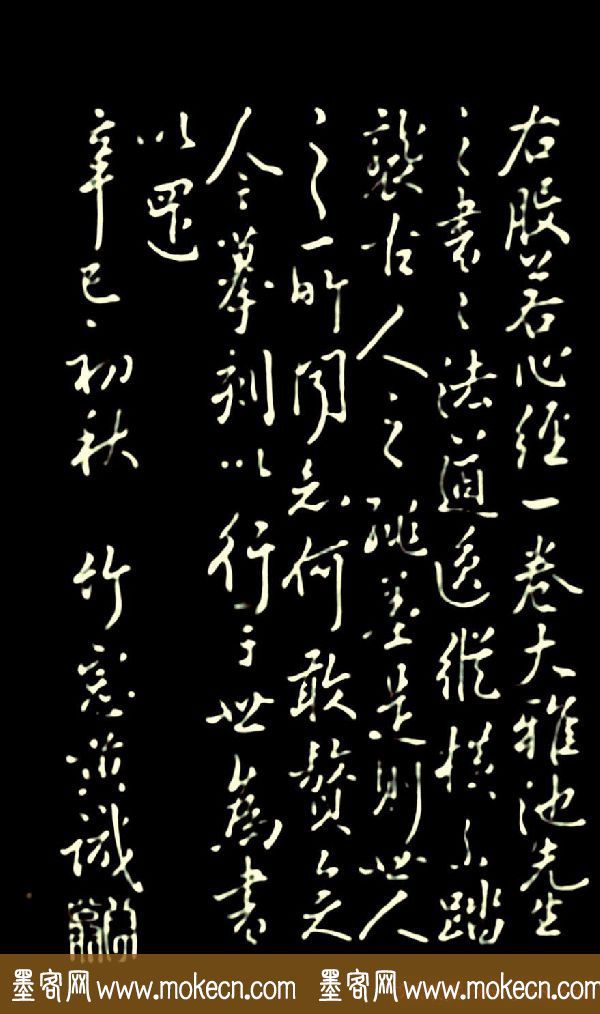 右般若心經一卷大雅池先生
之書之法遒逸縱横不踏
襲古人之
墨是則世人
之所聞知何敢贅
今摹刻以行于世為書
以還
辛巳初秋 竹窓 誠
墨客网 www.mokecn.com 墨客网 www.mokecn.com